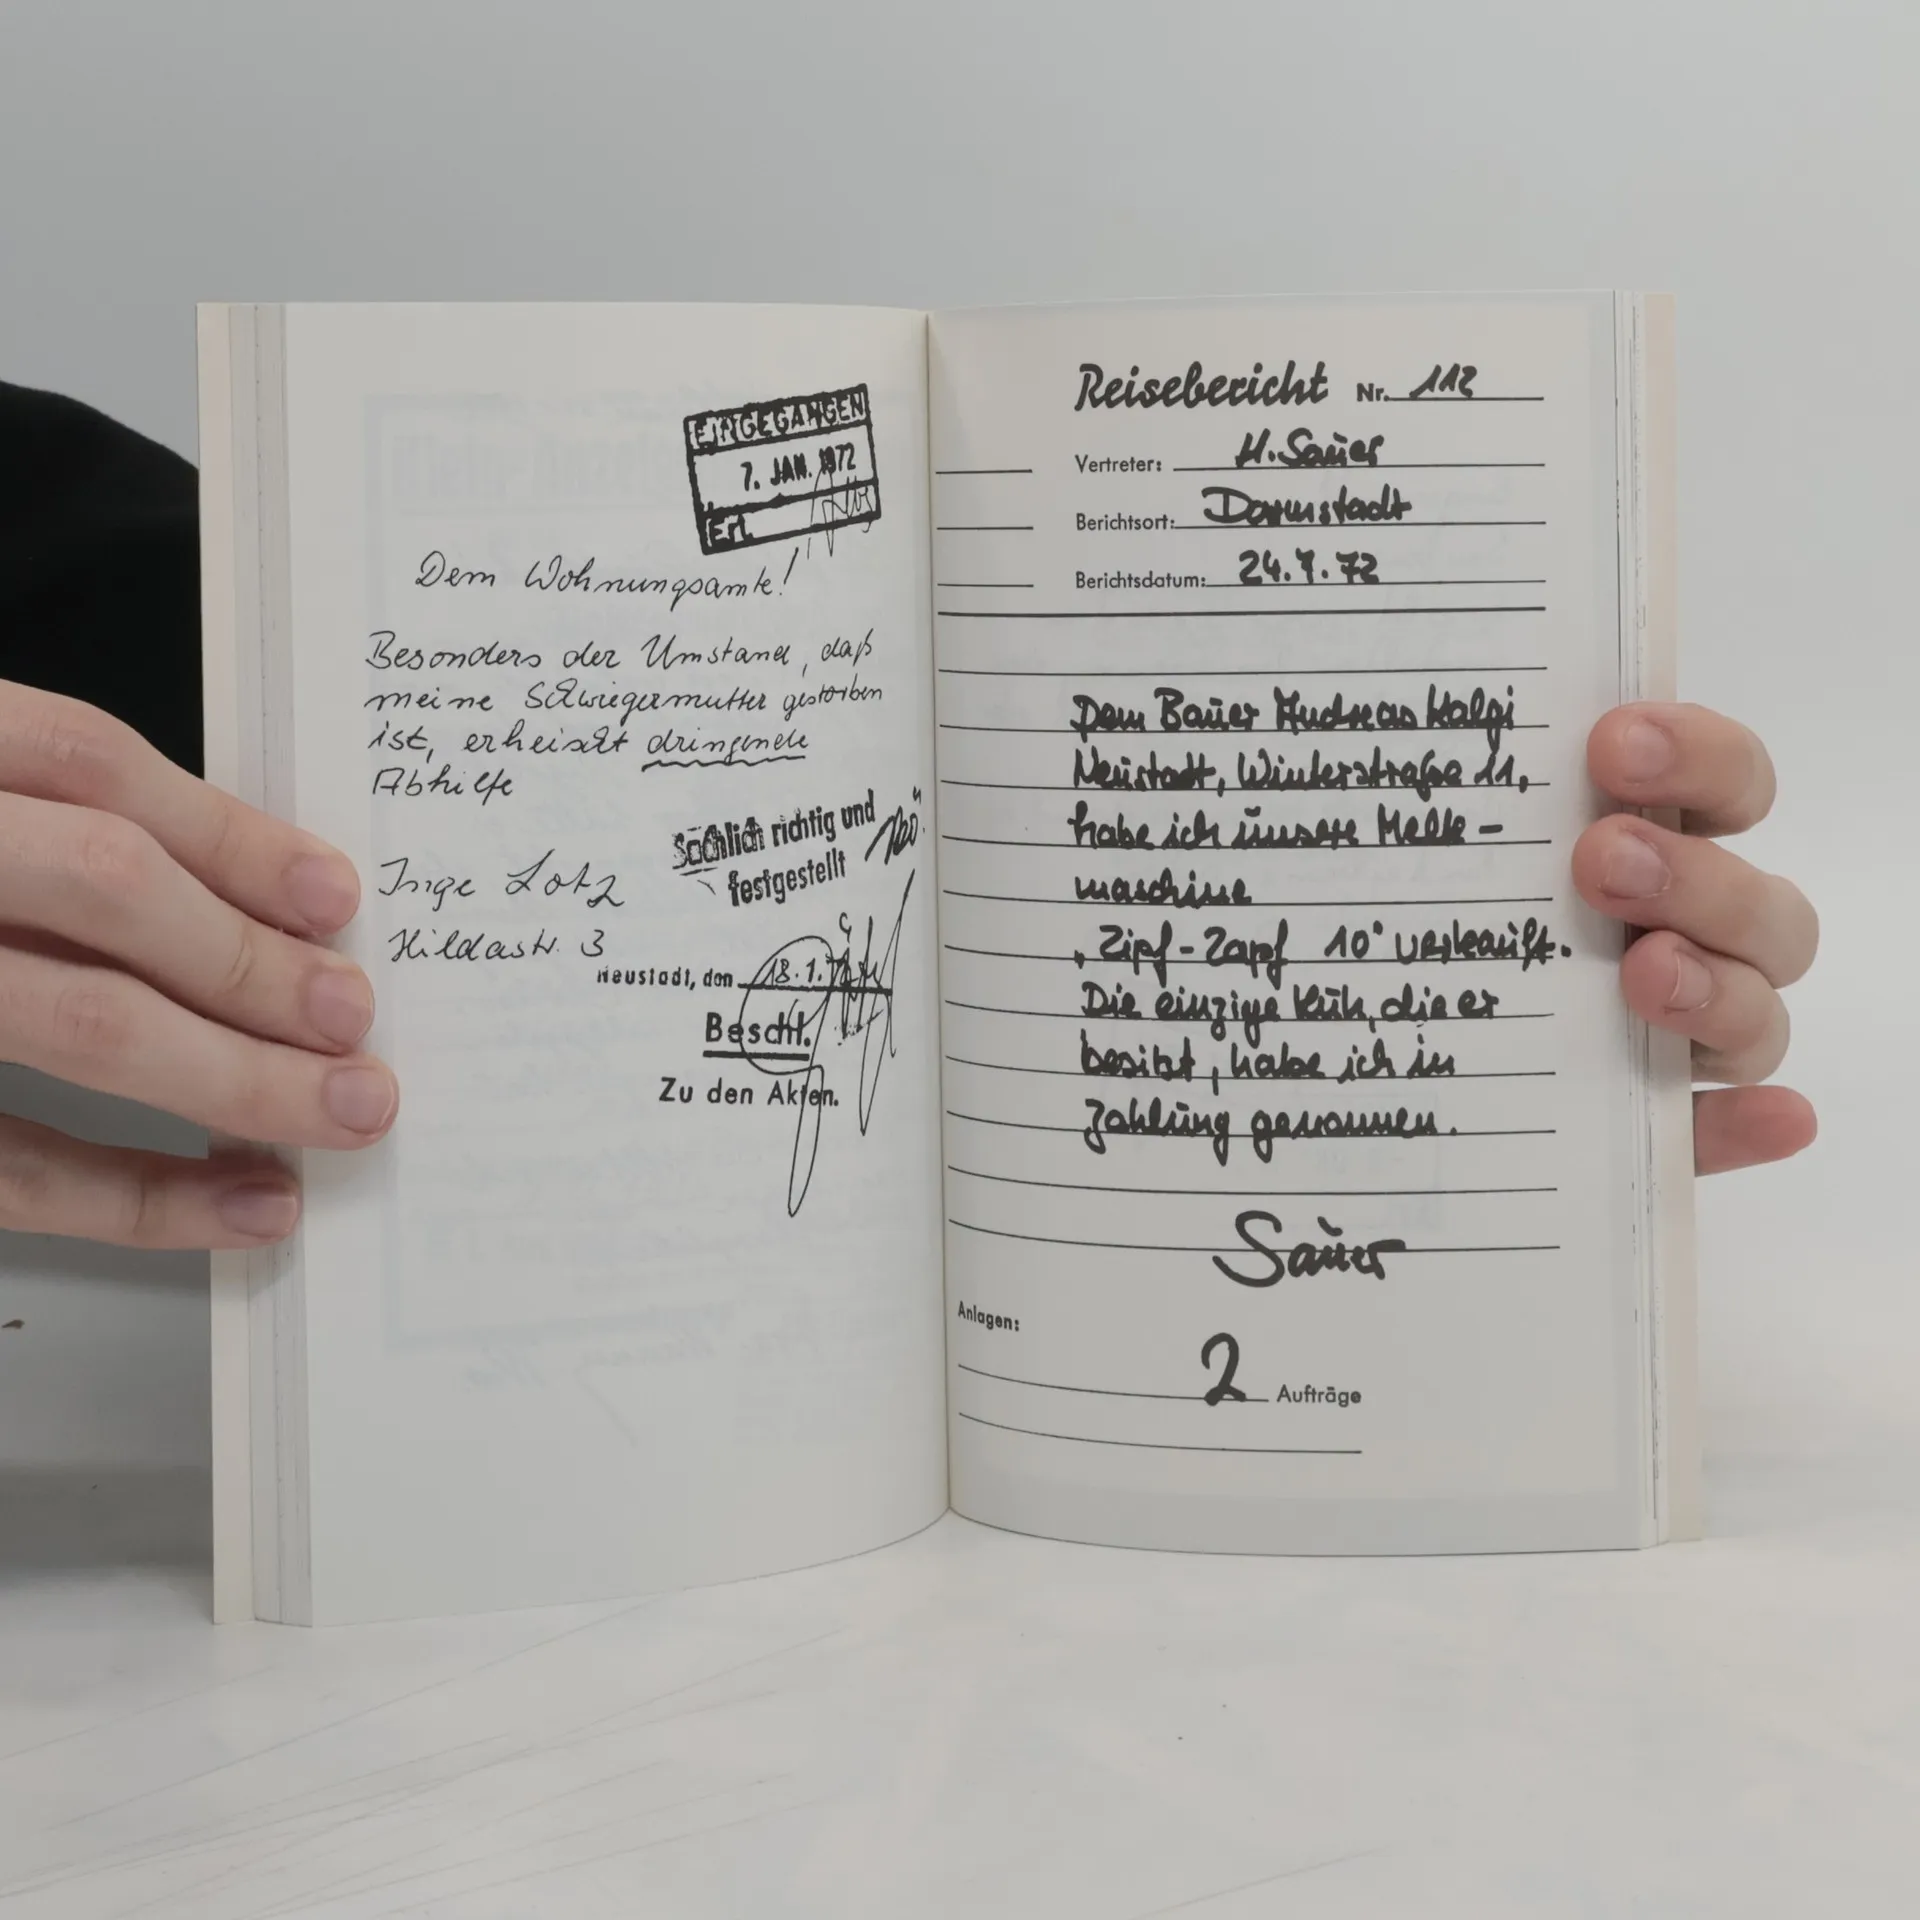 EINGEGANGEN
7. JAN. 1972
Erl.
Dem Wohnungsamte!
Besonders der Umstand, daß
meine Schwiegermutter gestorben
ist, erheischt dringende
Abhilfe
Sachlich richtig und
festgestellt
Inge Lotz
Hildastr. 3
Neustadt, den 18.1.
Beschl.
Zu den Akten.
Reisebericht Nr. 112
Vertreter: H. Sauer
Berichtsort: Darmstadt
Berichtsdatum: 24.7.72
Dem Bauer Andreas Kalgi
Neustadt, Winterstraße 11,
habe ich unsere Melk-
maschine
„Zipf-Zapf 10" verkauft.
Die einzige Kuh, die er
besitzt, habe ich in
Zahlung genommen.
Sauer
Anlagen:
2 Aufträge